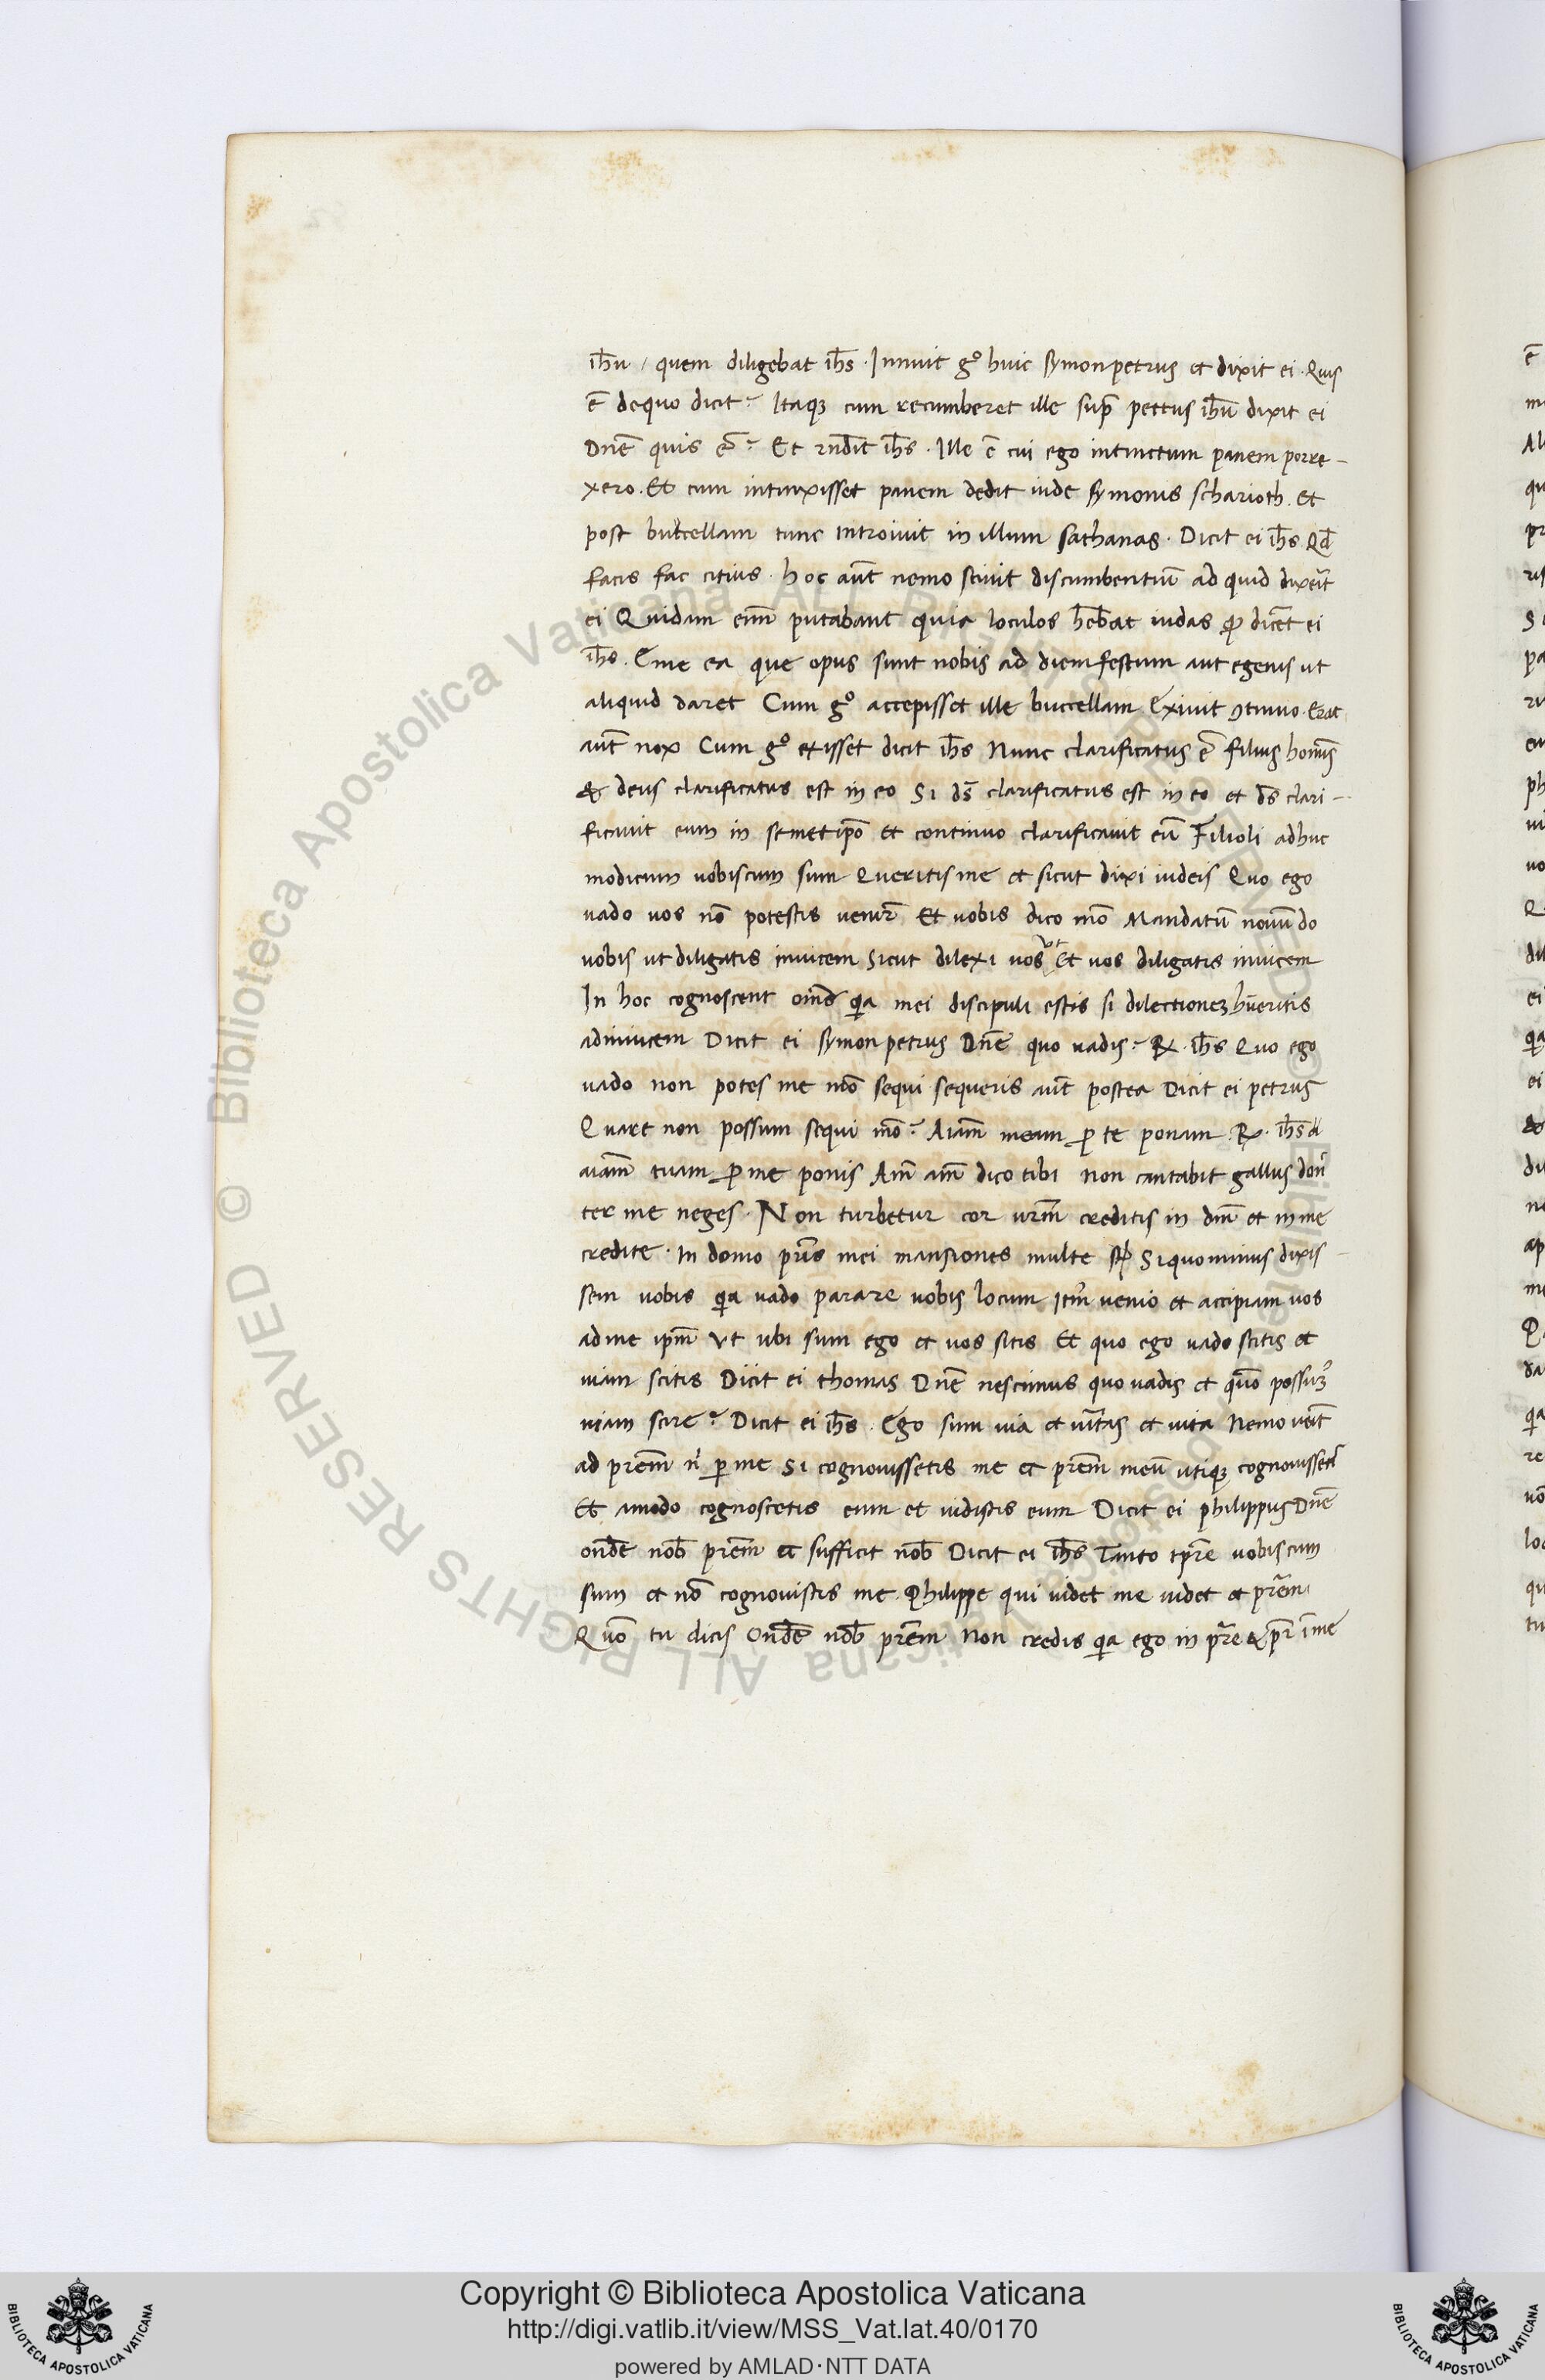 ih̅u / quem diligebat ih̅s · Innuit gº huic symon petrus et dixit ei · Quis
ē dequo dicit? Itaqꝫ cum recumberet ille sup̄ pectus ih̅u dixit ei
Dn̄e quis ē? Et rn̄dit ih̅s · Ille ē cui ego intinctum panem porre-
xero. Et cum intinxisset panem dedit iude symonis scharioth. Et
post buccellam tunc introivit in illum sathanas · Dicit ei ih̅s Qd̄
facis fac citius · hoc aūt nemo scivit discumbentiū ad quid dixerīt
ei Quidam em̄ putabant quia loculos hēbat iudas ꝙ dicēt ei
ih̅s. Eme ea que opus sunt nobis ad diem festum aut egenis ut
aliquid daret Cum gº accepisset ille buccellam Exivit ꝯtinuo. Erat
aūt nox Cum gº exisset dicit ih̅s Nunc clarificatus ē filius homīs
& deus clarificatus est in eo Si ds̄ clarificatus est in eo et ds̄ clari-
ficavit eum in semetip̄o et continuo clarificavit eū Filioli adhuc
modicum vobiscum sum Queritis me et sicut dixi iudeis Quo ego
vado vos nō potestis venir̄ Et vobis dico mō Mandatū novū do
vobis ut diligatis invicem Sicut dilexi vos ut Et vos diligatis invicem
In hoc cognoscent om̄s qia mei discipuli estis si dilectioneꝫ hūeritis
adinvicem Dicit ei symon petrus Dn̄e quo vadis? R. ih̅s Quo ego
vado non potes me mō sequi sequeris aūt postea Dicit ei petrus
Quare non possum sequi mō? Aīam meam ꝓ te ponam. R. ih̅s
aīam tuam ꝓ me ponis Am̄ am̄ dico tibi Non cantabit gallus don̄
ter me neges. Non turbetur cor vrm̄ creditis in dm̄ et in me
credite. In domo pr̄is mei mansiones multe st̄ Siquominus dixis-
sem vobis qia vado parare vobis locum Itm̄ venio et accipiam vos
ad me ipm̄ Ut ubi sum ego et vos sitis Et quo ego vado scitis et
viam scitis Dicit ei thomas Dn̄e nescimus quo vadis et quō possumꝰ
viam scire? Dicit ei ih̅s. Ego sum via et vītas et vita Nemo veīt
ad prēm ni ꝑ me Si cognovissetis me et prēm meū utiqꝫ cognovisset̄
Et amodo cognoscetis eum et vidistis eum Dicit ei philippus Dn̄e
on̄de nob̄ prēm et sufficit nob̄ Dicit ei ih̅s Tanto tp̄re vobiscum
sum et nō cognovistis me Philippe qui videt me videt et prēm
Quō tu dicis On̄de nob̄ prēm Non credis qia ego in pr̄e & pr̄ ī me
Copyright © Biblioteca Apostolica Vaticana
http://digi.vatlib.it/view/MSS_Vat.lat.40/0170
powered by AMLAD·NTT DATA